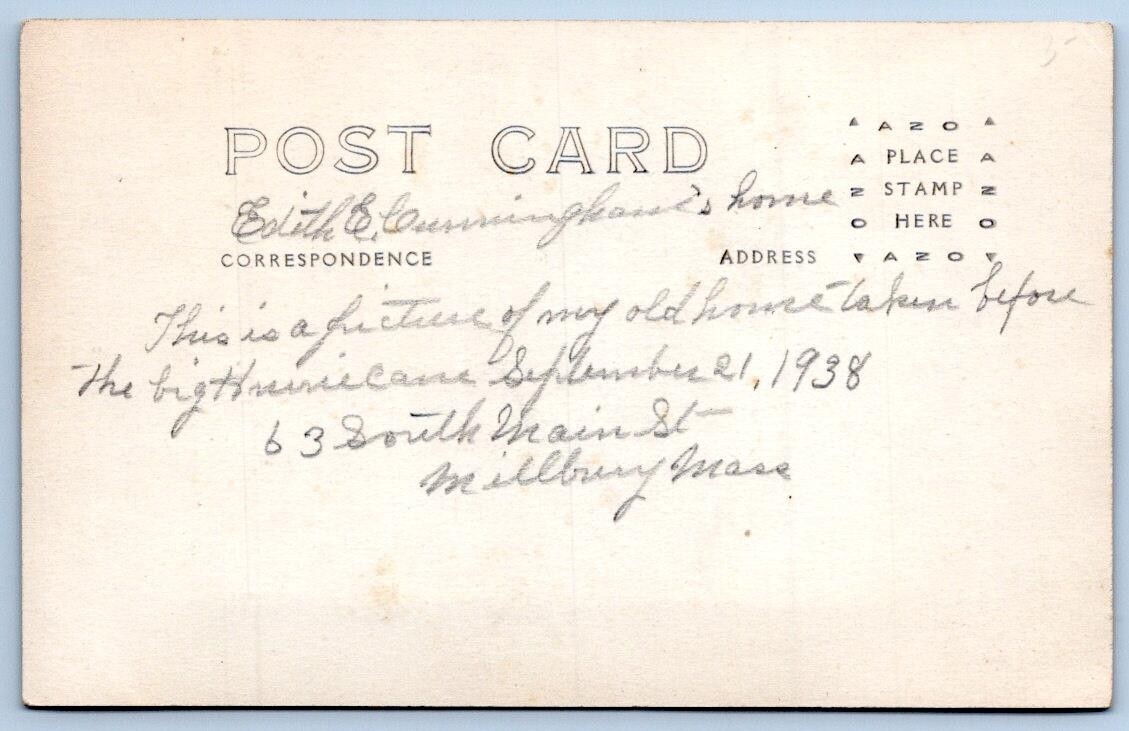 5-
POST CARD
▲ A Z O ▲
A PLACE A
Z STAMP Z
O HERE O
▼ A Z O ▼
Edith E. Cunningham's home
CORRESPONDENCE
ADDRESS
This is a picture of my old home taken before
the big Hurricane September 21, 1938
63 South Main St
Millbury Mass